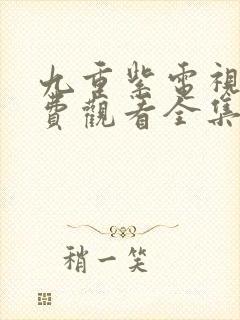 九重紫電視
費觀看全集
稍一笑